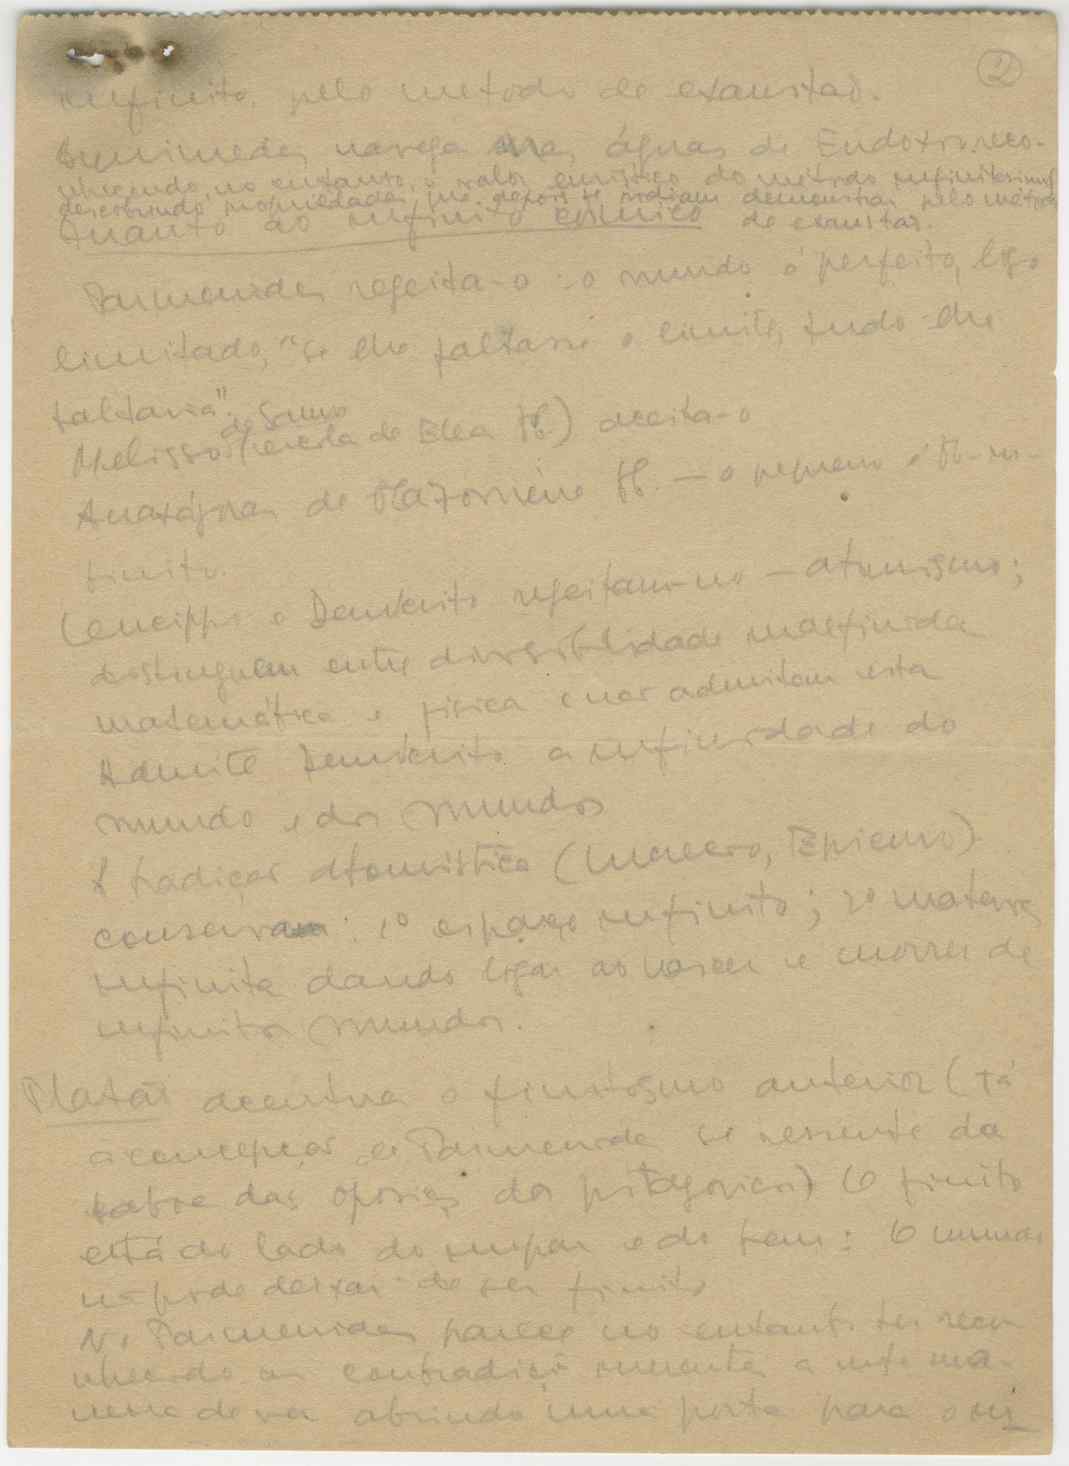 2
infinito, pelo metodo de exaustão.
Arquimedes navega nas águas de Eudoxo, reco-
nhecendo, no entanto, o valor eurístico do método infinitesimal
descobrindo propriedades que depois se podiam demonstrar pelo método
de exaustão.
Quanto ao infinito cósmico
Parmenides regeita-o: o mundo é perfeito, logo
limitado, "se lhe faltasse o limite, tudo lhe
faltaria".
Melisso de Samo (escola de Elea) aceita-o
Anaxágoras de — o pequeno é in-
finito.
Leucippo e Demócrito regeitam-no — atomismo;
distinguem entre divisibilidade indefinida
matemática e física e não admitem esta
Admite Demócrito a infinidade do
mundo e dos mundos
A tradição atomística (Lucrecio, Epicuro)
conserva: 1º espaço infinito; 2º matéria
infinita dando lugar ao nascer e morrer de
infinitos mundos.
Platão acentua o finitismo anterior (já
a concepção de Parmenides se ressente da
taboa das oposições dos pitagoricos) O finito
está do lado do impar e do bem: O mundo
não pode deixar de ser finito
No Parmenides parece no entanto ter reco-
nhecido as contradições inerentes a esta ma-
neira de ver abrindo uma porta para o in